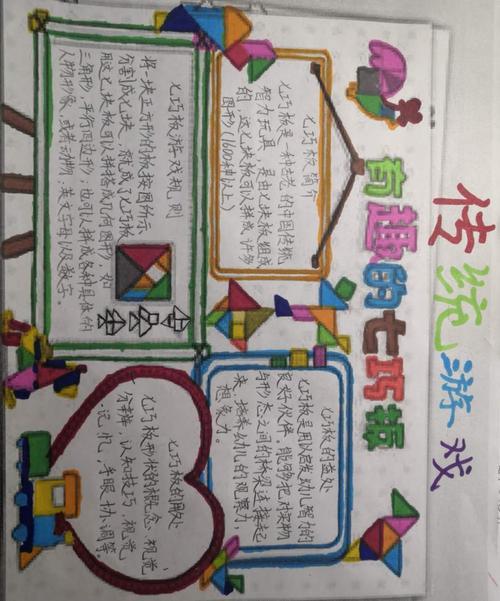 传统游戏
有趣的七巧板
七巧板简介
七巧板是一种古老的中国传统
智力玩具，是由七块板组成
的，这七块板可以拼成许多
图形(1600种以上)
七巧板的益处
七巧板是用以启发幼儿智力的
良好伙伴，能够把对实物
与形态之间的桥梁连接起
来，培养幼儿的观察力、
想象力。
七巧板游戏规则
将一块正方形的板按图所示
分割成七块，就成了七巧板
用这七块板可以拼搭成几何图形，如
三角形、平行四边形，也可以拼成各种具体的
人物形象，或者动物、英文字母以及数字。
七巧板的用处
七巧板形状的概念，视觉
分辨、认知技巧、视觉
记忆，手眼协调等。